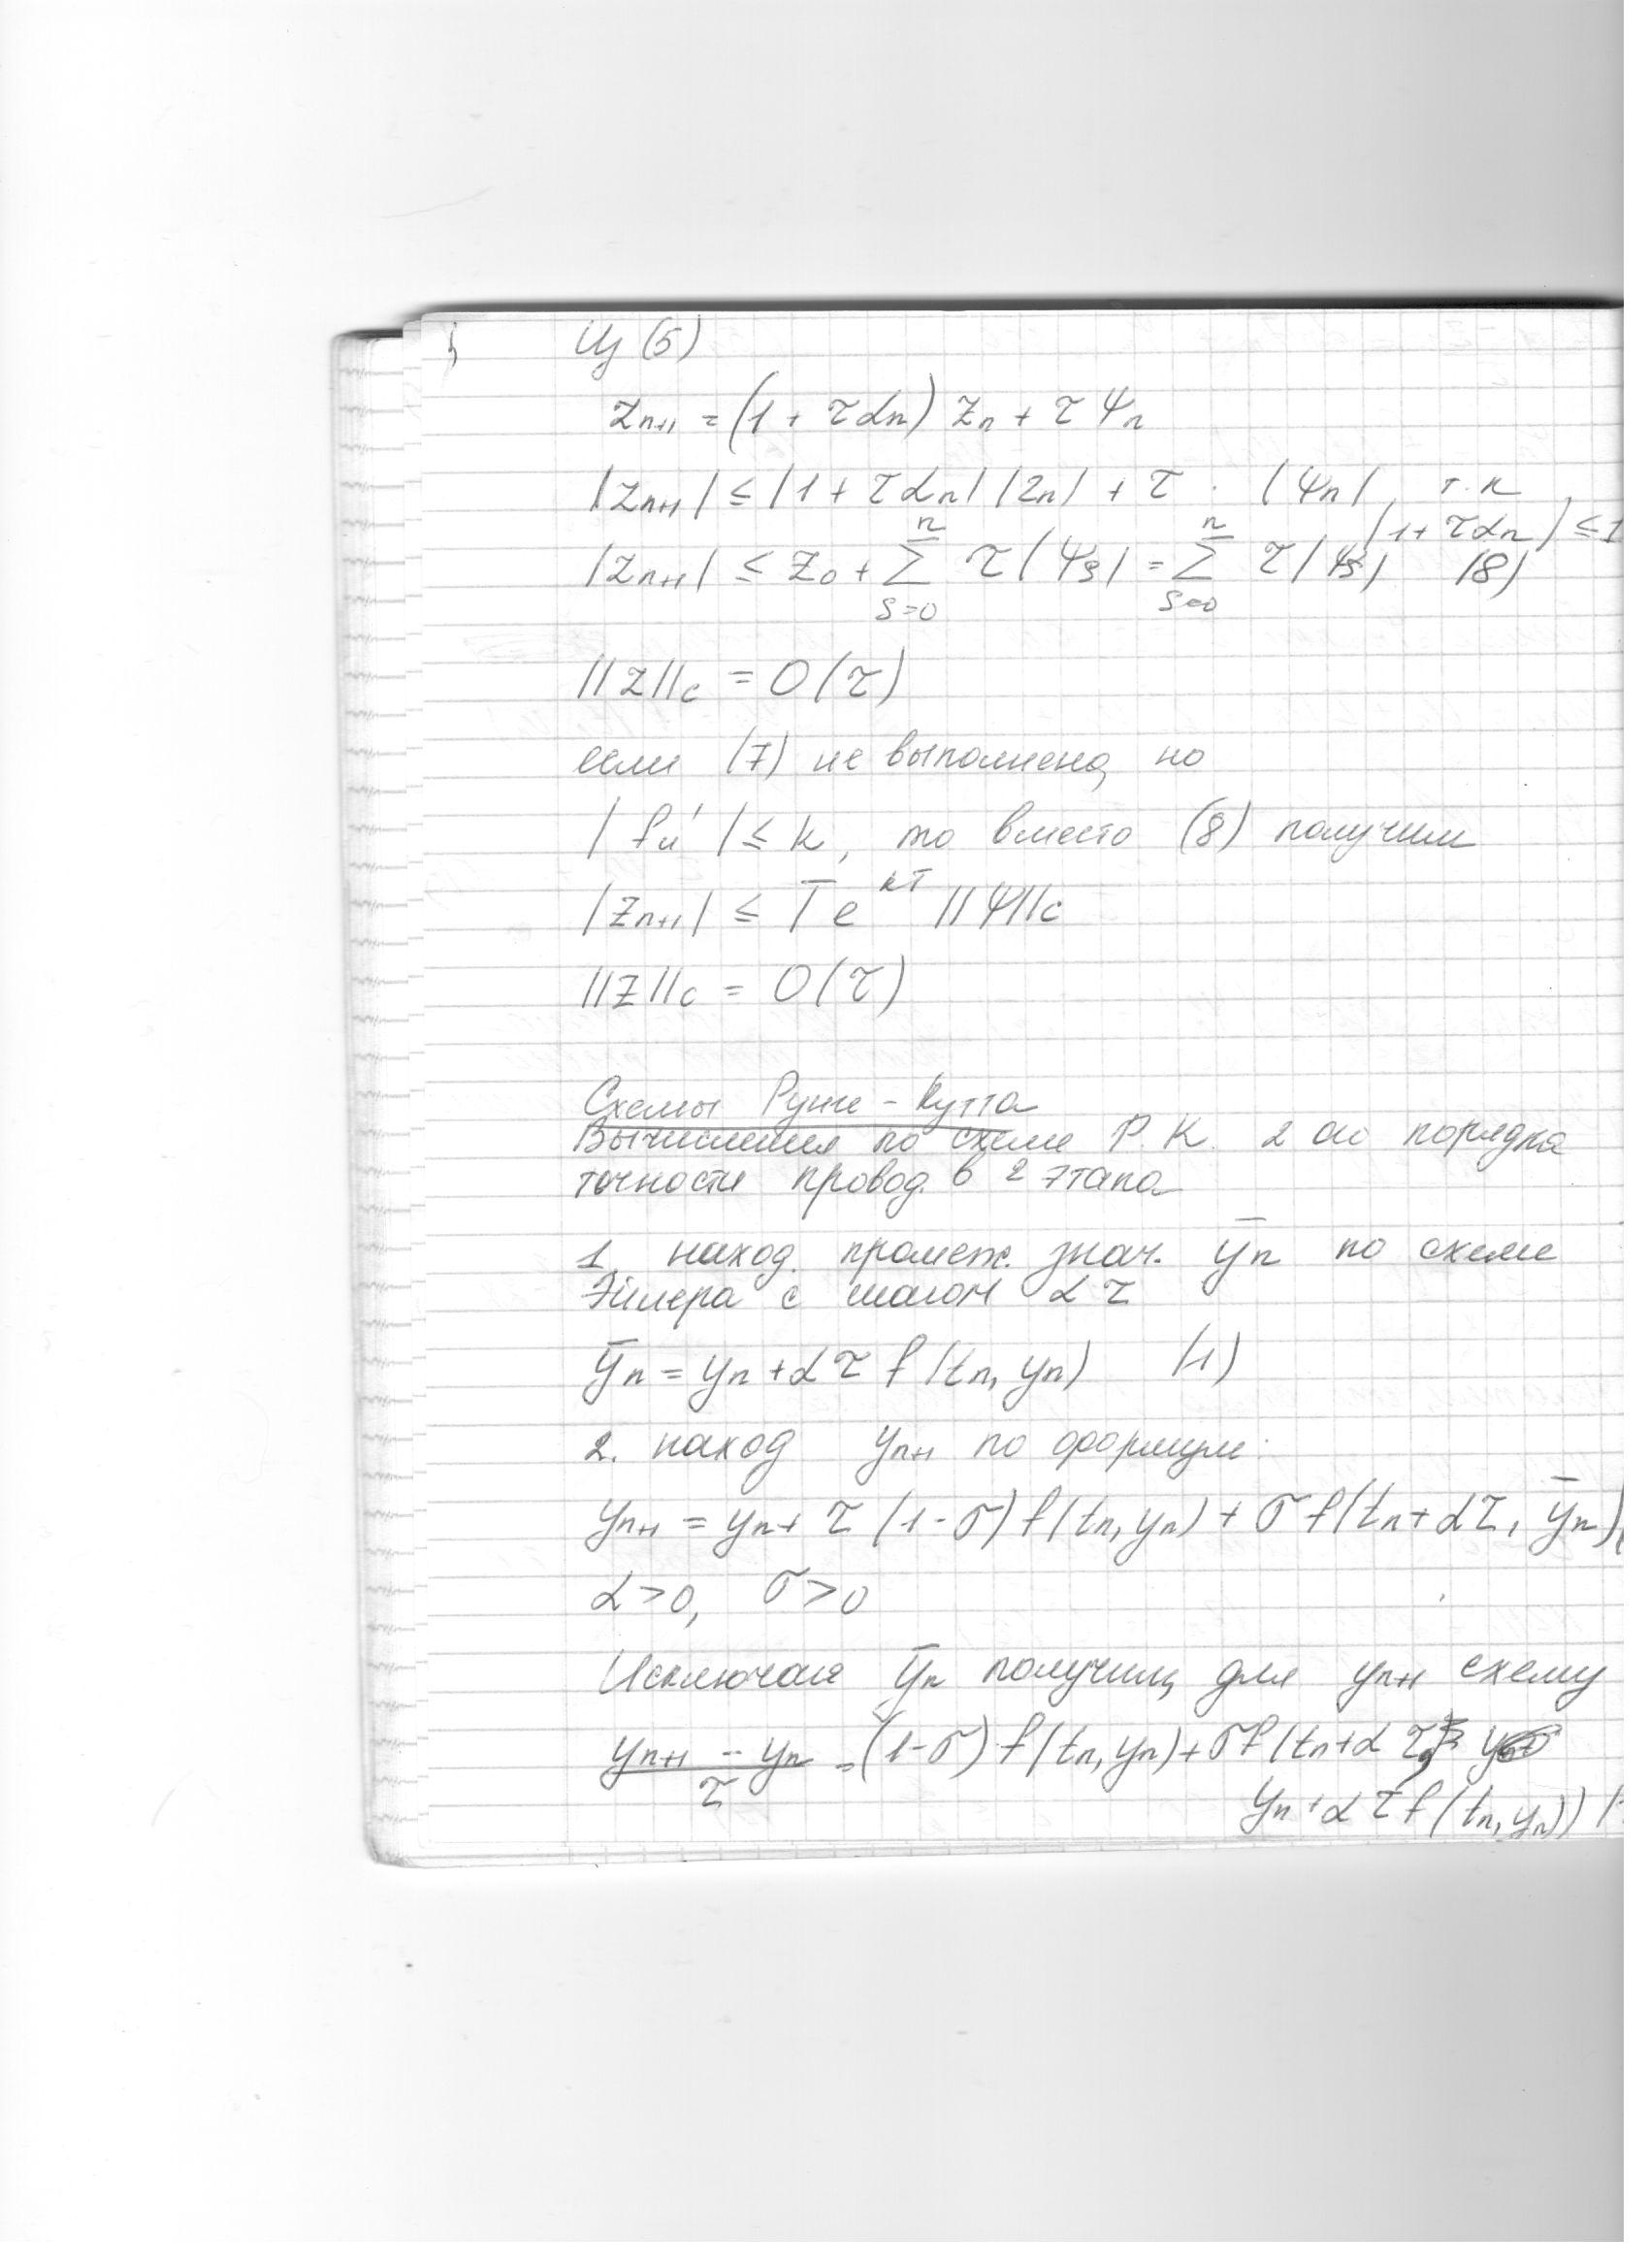 Из (5)
z_{n+1} = (1 + τα_n) z_n + τ ψ_n
|z_{n+1}| ≤ |1 + τα_n| |z_n| + τ · |ψ_n|, т.к
|1 + τα_n| ≤ 1
|z_{n+1}| ≤ z_0 + Σ_{s=0}^{n} τ |ψ_s| = Σ_{s=0}^{n} τ |ψ_s| (8)
||z||_c = O(τ)
если (7) не выполнено, но
|f_u'| ≤ k, то вместо (8) получим
|z_{n+1}| ≤ T e^{kT} ||ψ||_c
||z||_c = O(τ)
Схемы Рунге - Кутта
Вычисления по схеме Р. К. 2 ого порядка
точности провод. в 2 этапа
1. наход. промеж. знач. ȳ_n по схеме
Эйлера с шагом α τ
ȳ_n = y_n + α τ f(t_n, y_n) (1)
2. наход y_{n+1} по формуле:
y_{n+1} = y_n + τ (1 - σ) f(t_n, y_n) + σ f(t_n + α τ, ȳ_n) (
α > 0, σ > 0
Исключая ȳ_n получим, для y_{n+1} схему
(y_{n+1} - y_n)/τ = (1 - σ) f(t_n, y_n) + σ f(t_n + α τ,
y_n + α τ f(t_n, y_n)) (